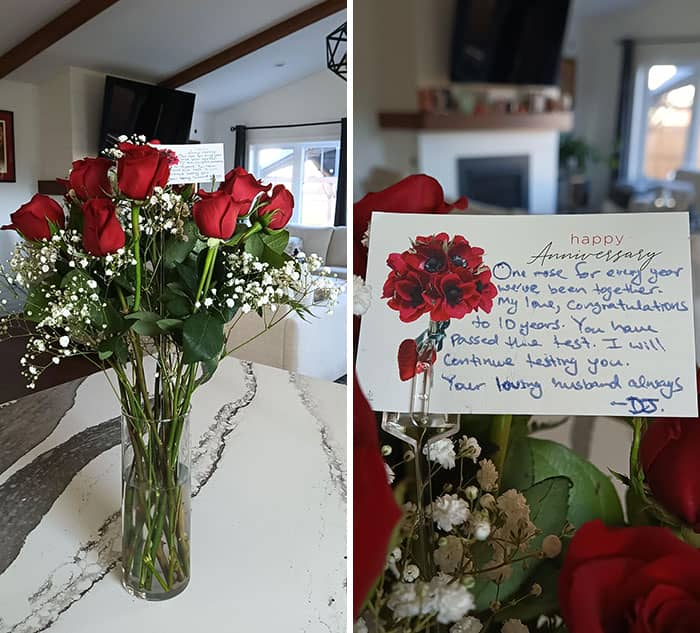 happy
Anniversary
One rose for every year
we've been together.
My love, Congratulations
to 10 years. You have
Passed the test. I will
Continue testing you.
Your loving husband always
-DJ.